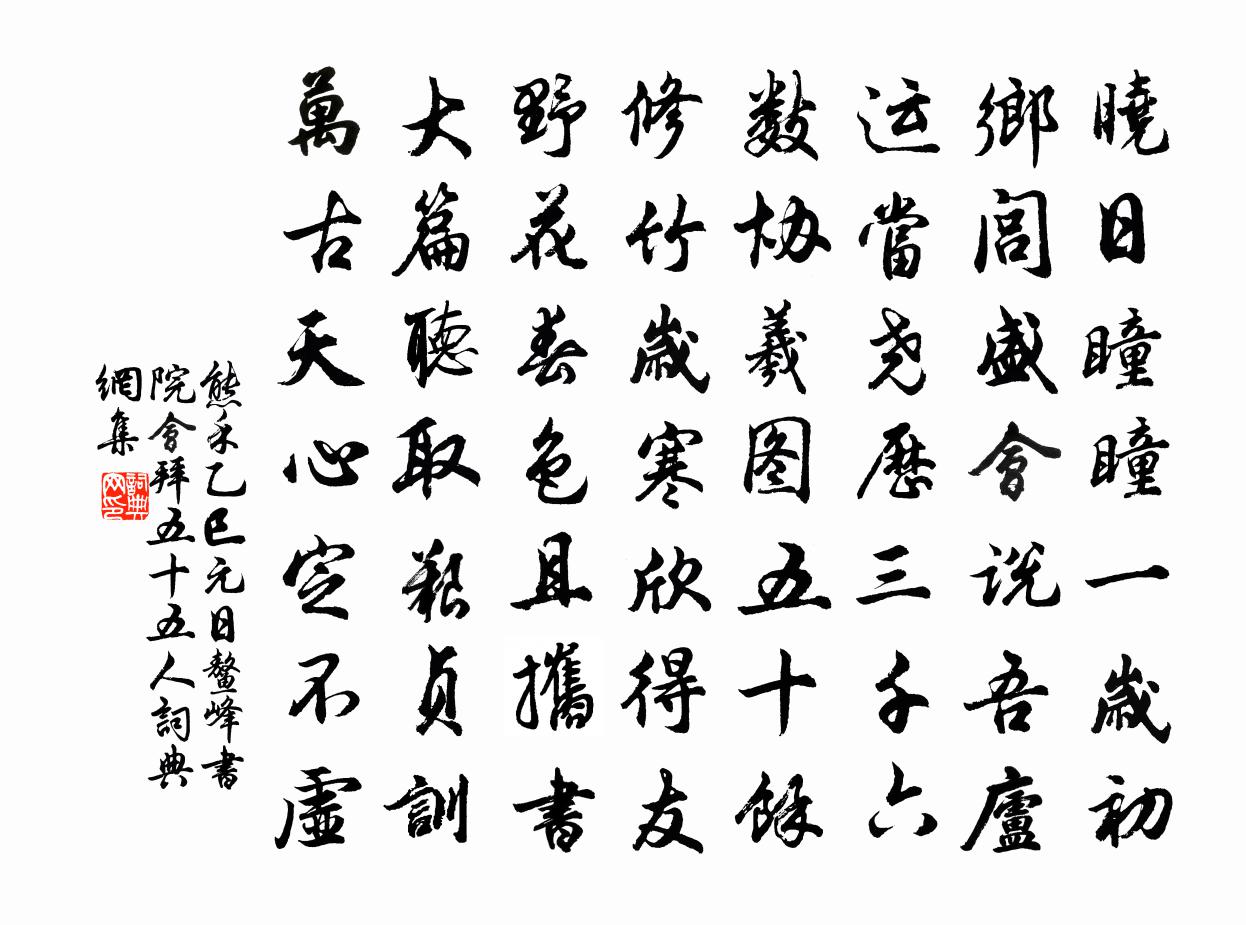 曉日曈曈一歲初
鄉閭盛會說吾廬
运當尧歷三千六
数协羲图五十餘
修竹歲寒欣得友
野花春色且攜書
大篇聽取艱貞訓
萬古天心定不虛
熊禾乙巳元日鰲峰書
院會拜五十五人詞典
網集
詞典网印